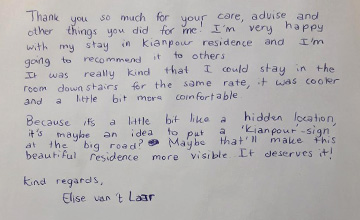 Thank you so much for your care, advise and
other things you did for me! I'm very happy
with my stay in Kianpour residence and I'm
going to recommend it to others
It was really kind that I could stay in the
room downstairs for the same rate, it was cooler
and a little bit more comfortable
Because it's a little bit like a hidden location,
it's maybe an idea to put a 'Kianpour'-sign
at the big road? Maybe that'll make this
beautiful residence more visible. It deserves it!
Kind regards,
Elise van 't Laar